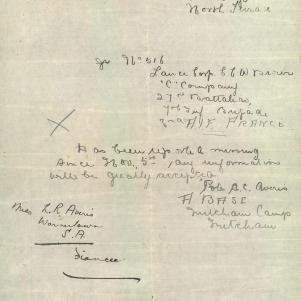 North
No 516
Lance Corp E C W
"C" Company
27th Battalion
7th Inf Brigade
2nd A.I.F. FRANCE
Has been reported missing
since Nov. 5th any information
will be greatly accepted
Pte A.C. Averis
A BASE
Mitcham Camp
Mitcham
Miss L.R. Averis
Warnertown
S.A.
Fiancee